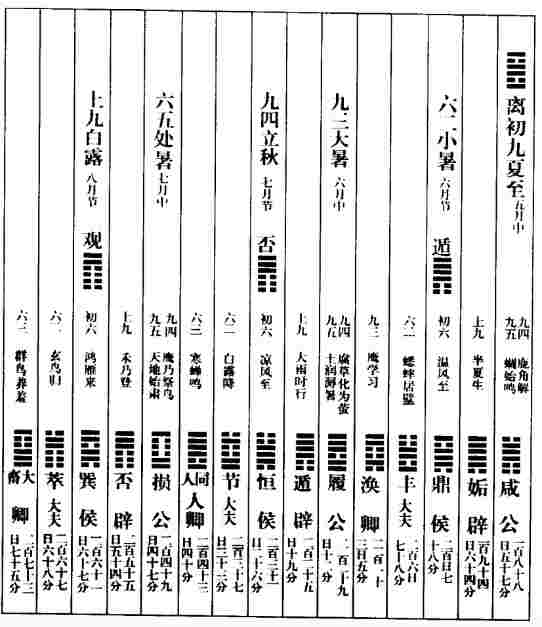 离初九夏至五月中
九四 鹿角解
九五 蜩始鸣
咸 公
一百八十八
日五十七分
上九 半夏生
姤 辟
一百九十四
日六十四分
六二小暑六月节
遁
初六 温风至
鼎 侯
二百日七
十八分
六二 蟋蟀居壁
丰 大夫
二百六日
七十八分
九三 鹰学习
涣 卿
二百一十
三日五分
九三大暑六月中
九四 腐草化为萤
九五 土润溽暑
履 公
二百一十九
日十二分
上九 大雨时行
遁 辟
二百二十五
日十九分
九四立秋七月节
否
初六 凉风至
恒 侯
二百三十一
日二十六分
六二 白露降
节 大夫
二百三十七
日三十三分
六三 寒蝉鸣
同人 卿
二百四十三
日四十分
六五处暑七月中
九四 鹰乃祭鸟
九五 天地始肃
损 公
二百四十九
日四十七分
上九 禾乃登
否 辟
二百五十五
日五十四分
上九白露八月节
观
初六 鸿雁来
巽 侯
二百六十一
六二 玄鸟归
萃 大夫
二百六十七
日六十八分
六三 群鸟养羞
大畜 卿
二百七十三
日七十五分